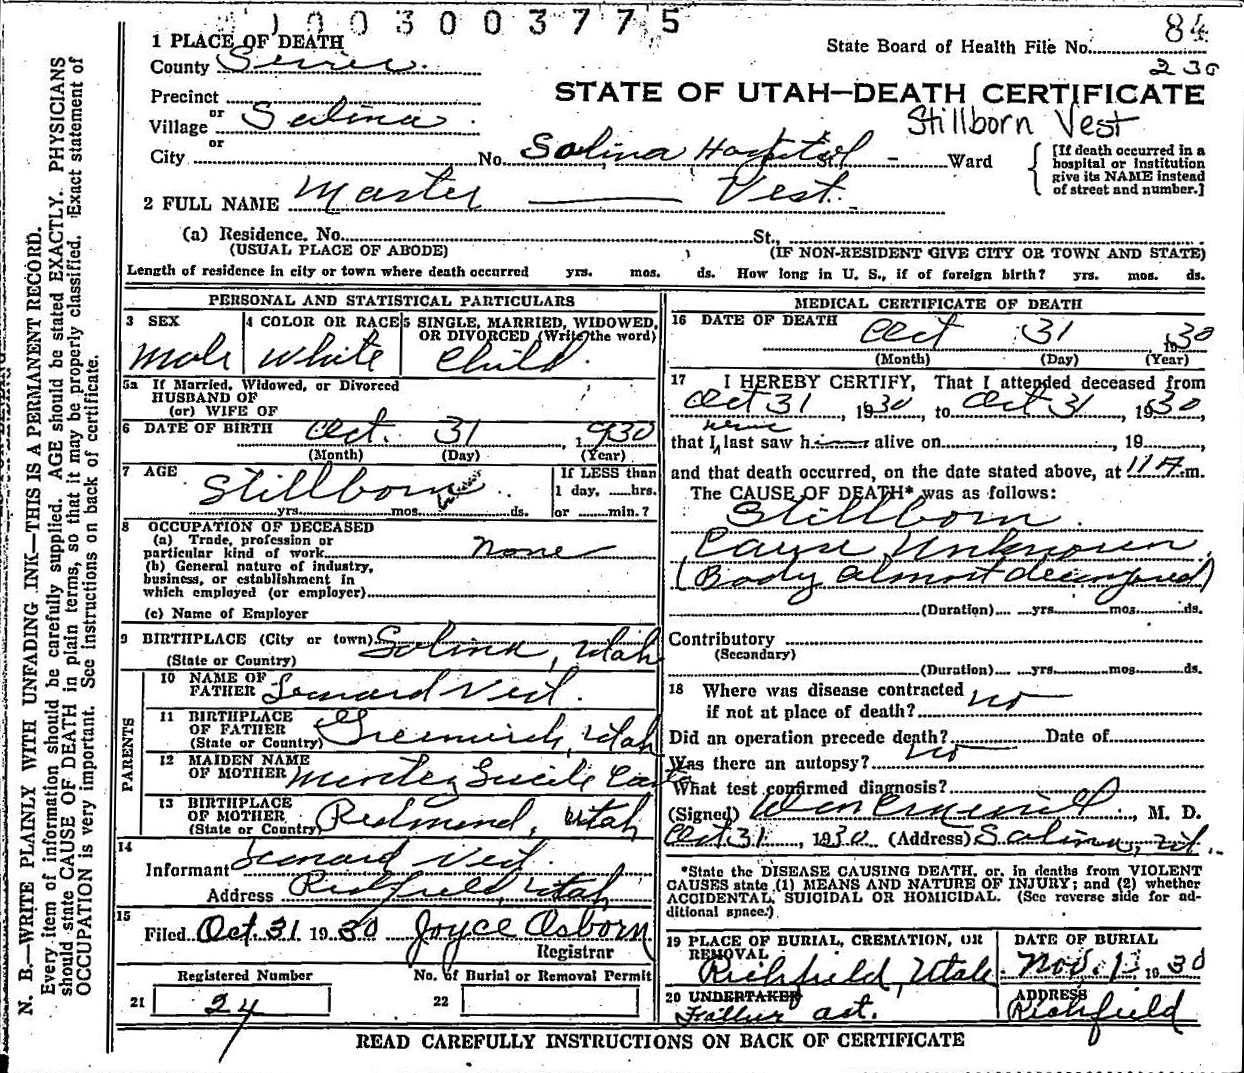 003003775
84
State Board of Health File No.
230
STATE OF UTAH—DEATH CERTIFICATE
Stillborn Vest
1 PLACE OF DEATH
County Sevier
Precinct
or
Village Salina
or
City No. Salina Hospital - Ward
[If death occurred in a hospital or institution give its NAME instead of street and number.]
2 FULL NAME Master Vest.
(a) Residence. No. St.,
(USUAL PLACE OF ABODE) (IF NON-RESIDENT GIVE CITY OR TOWN AND STATE)
Length of residence in city or town where death occurred yrs. mos. ds. How long in U. S., if of foreign birth? yrs. mos. ds.
PERSONAL AND STATISTICAL PARTICULARS
3 SEX 4 COLOR OR RACE 5 SINGLE, MARRIED, WIDOWED, OR DIVORCED (Write the word)
Male White Child
5a If Married, Widowed, or Divorced
HUSBAND OF
(or) WIFE OF
6 DATE OF BIRTH Oct. 31, 1930
(Month) (Day) (Year)
7 AGE Stillborn
yrs. mos. ds.
If LESS than
1 day, ......hrs.
or ......min.?
8 OCCUPATION OF DECEASED
(a) Trade, profession or
particular kind of work none
(b) General nature of industry,
business, or establishment in
which employed (or employer)
(c) Name of Employer
9 BIRTHPLACE (City or town) Salina, Utah
(State or Country)
PARENTS
10 NAME OF
FATHER Leonard Vest.
11 BIRTHPLACE
OF FATHER Greenwich, Utah
(State or Country)
12 MAIDEN NAME
OF MOTHER Lucile
13 BIRTHPLACE
OF MOTHER Redmond, Utah
(State or Country)
14
Informant Leonard Vest.
Address Richfield, Utah
15
Filed Oct. 31 1930 Joyce Osborn
Registrar
Registered Number No. of Burial or Removal Permit
21 24 22
MEDICAL CERTIFICATE OF DEATH
16 DATE OF DEATH Oct 31 1930
(Month) (Day) (Year)
17 I HEREBY CERTIFY, That I attended deceased from
Oct 31, 1930 to Oct 31, 1930,
that I last saw h alive on, 19,
and that death occurred, on the date stated above, at 11 A.m.
The CAUSE OF DEATH* was as follows:
Stillborn.
Cause Unknown.
(Body almost decomposed)
(Duration) yrs. mos. ds.
Contributory
(Secondary)
(Duration) yrs. mos. ds.
18 Where was disease contracted
if not at place of death? no
Did an operation precede death? no Date of
Was there an autopsy?
What test confirmed diagnosis?
(Signed), M. D.
Oct 31, 1930 (Address) Salina, Ut.
*State the DISEASE CAUSING DEATH, or, in deaths from VIOLENT
CAUSES state (1) MEANS AND NATURE OF INJURY; and (2) whether
ACCIDENTAL, SUICIDAL OR HOMICIDAL. (See reverse side for ad-
ditional space.)
19 PLACE OF BURIAL, CREMATION, OR REMOVAL DATE OF BURIAL
Richfield, Utah Nov. 1 1930
20 UNDERTAKER ADDRESS
act. Richfield
READ CAREFULLY INSTRUCTIONS ON BACK OF CERTIFICATE
N. B.—WRITE PLAINLY WITH UNFADING INK—THIS IS A PERMANENT RECORD.
Every item of information should be carefully supplied. AGE should be stated EXACTLY. PHYSICIANS
should state CAUSE OF DEATH in plain terms, so that it may be properly classified. Exact statement of
OCCUPATION is very important. See instructions on back of certificate.